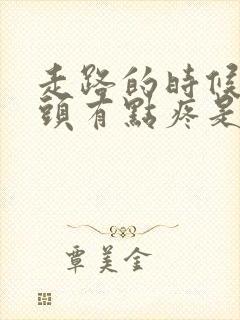 走路的時候
頭有點疼是
覃美金